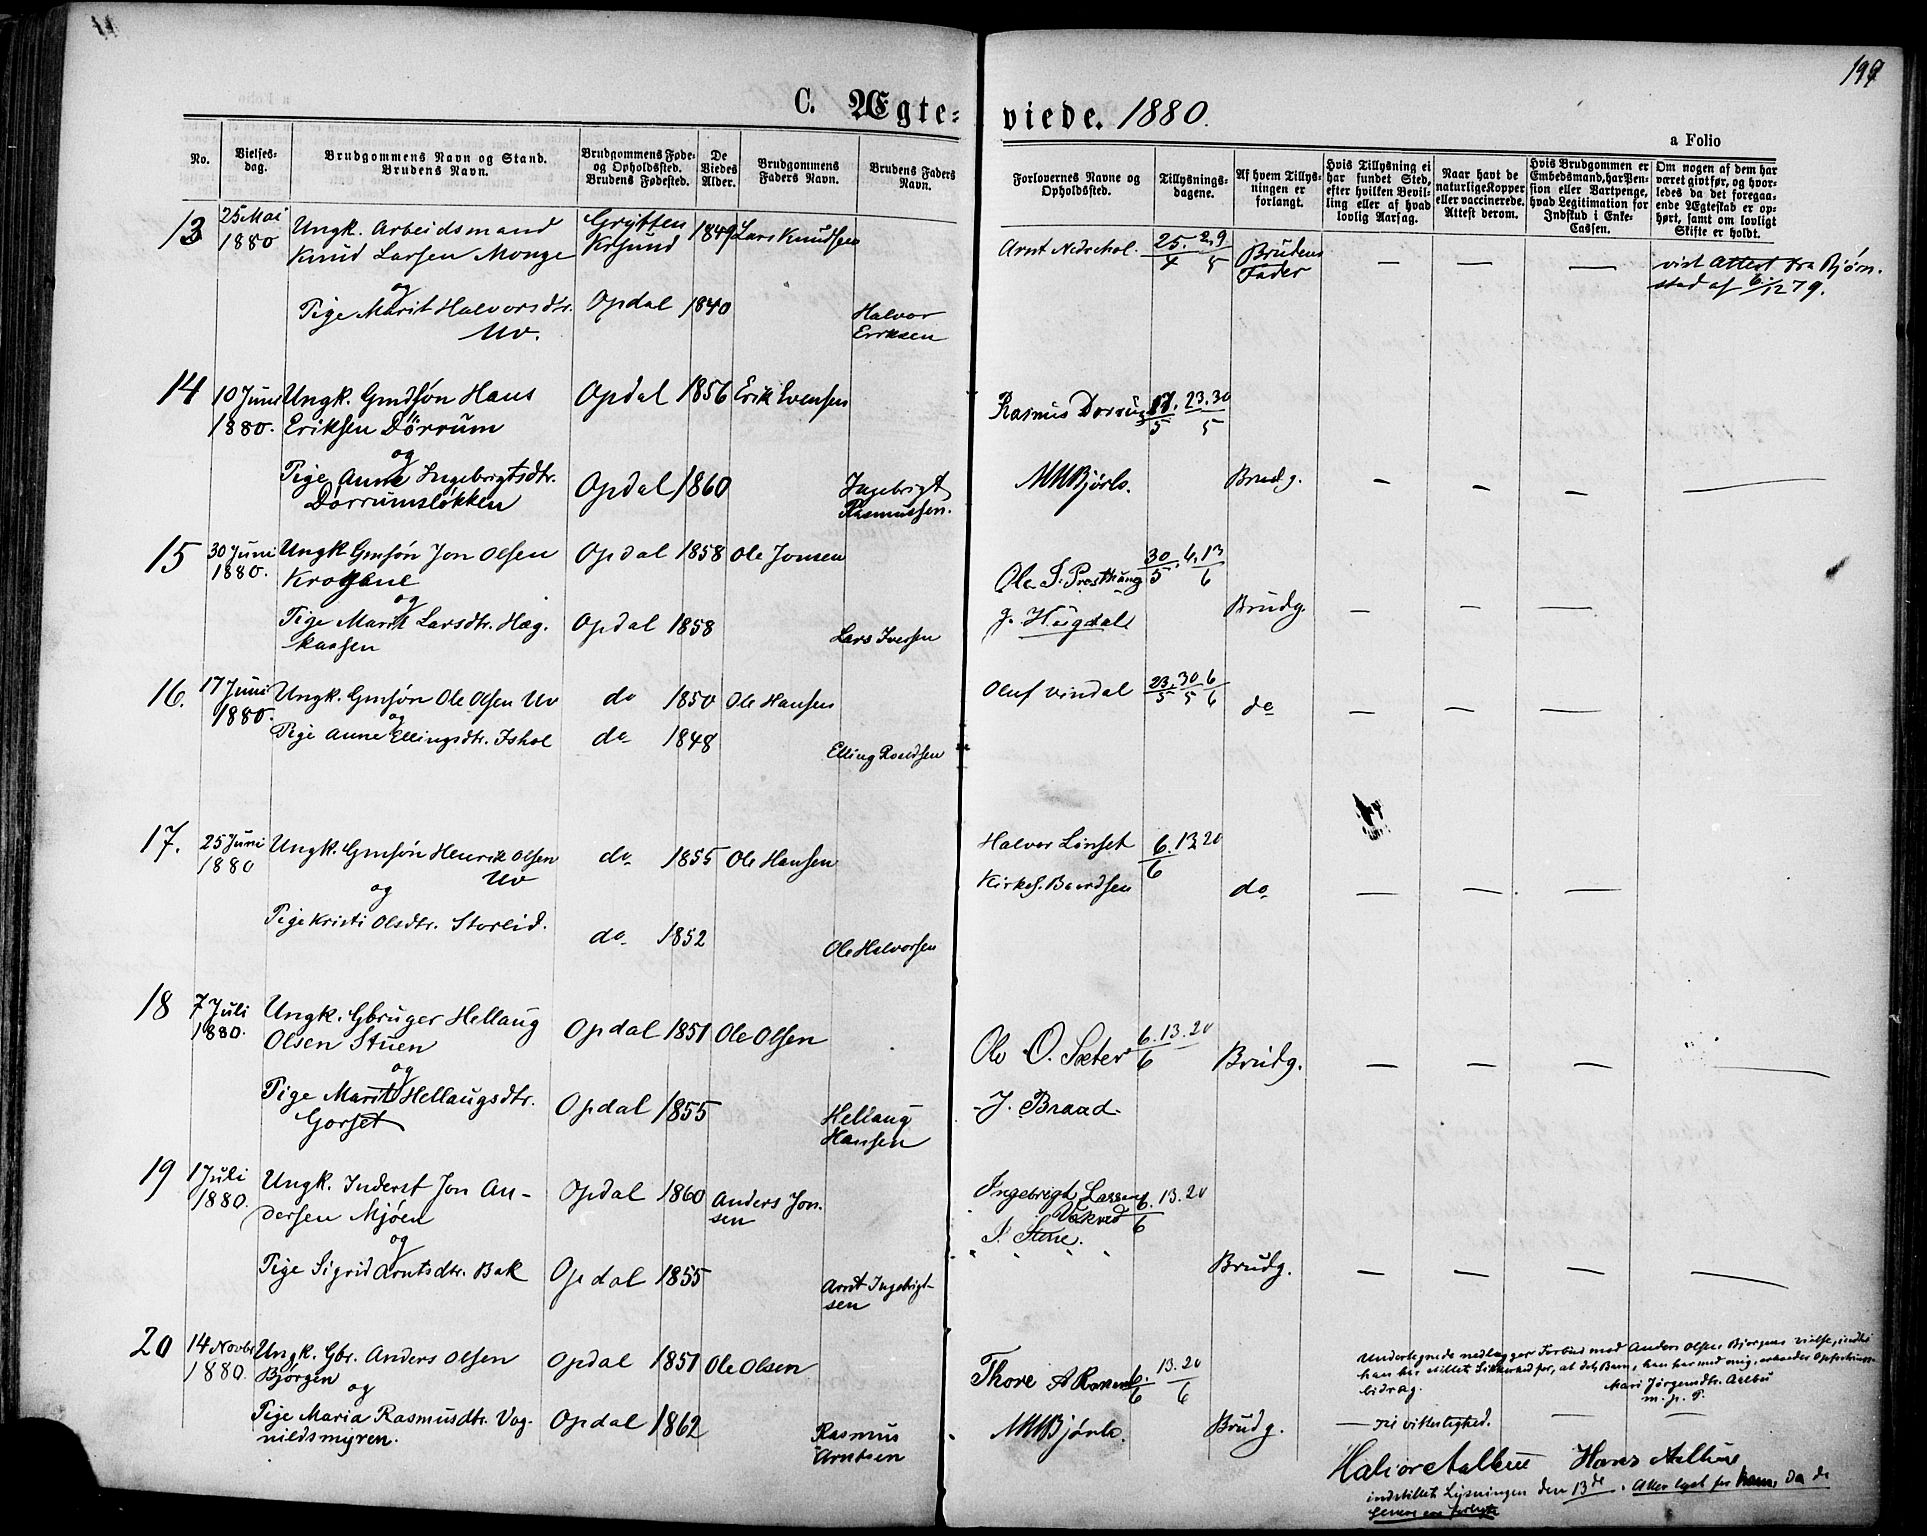 197
C. Ægte-
viede. 1880.
a Folio
No.
Vielses-
dag.
Brudgommens Navn og Stand.
Brudens Navn.
Brudgommens Føde-
og Opholdssted.
Brudens Fødested.
De
Viedes
Alder.
Brudgommens
Faders Navn.
Brudens Faders
Navn.
Forlovernes Navne og
Opholdssted.
Tillysnings-
dagene.
Af hvem Tillys-
ningen er
forlangt.
Hvis Tillysning ei
har fundet Sted,
efter hvilken Bevil-
ling eller af hvad
lovlig Aarsag.
Naar havt de
naturlige Kopper
eller vaccinerede.
Attest derom.
Hvis Brudgommen er
Embedsmand, har Pen-
sion eller Vartpenge,
hvad Legitimation for
Indskud i Enke-
Cassen.
Om nogen af dem har
været gift før, og hvor-
ledes da det foregaa-
ende Ægteskab er op-
hørt, samt om lovligt
Skifte er holdt.
13 25 Mai 1880
Ungk. Arbeidsmand
Knud Larsen Monge
Grytten
Krsund
1849 Lars Knudsen
og
Tige Marit Halvorsdtr.
Uv.
Opdal 1840
Halvor
Eriksen
Arnt Nedschol.
25/4 2, 9/5
Brudens
Fader
— — —
vist Attest fra Bjørn.
stad af 6/12 79.
14 10 Juni 1880.
Ungk. Gmdsøn Hans
Eriksen Dörrum
Opdal 1856 Erik Evensen
og
Tige Anne Ingebrigtsdtr.
Dorrumsløkken
Opdal 1860
Ingebrigt
Rasmussen.
Rasmus Dorrum
17/5. 23. 30/5
MMBjørlo.
Brudg. — — — —
15 30 Juni 1880.
Ungk Gmsøn Jon Olsen
Krogane
Opdal 1858 Ole Jonsen
og
Tige Marit Larsdtr. Hæg.
kaasen
Opdal 1858
Lars Iversen
30/5. 6. 13/6
J. Hugdal
Brudg. — — —
16. 17 Juni 1880.
Ungk. Gmsøn Ole Olsen Uv
do 1850 Ole Hansen
og
Tige Anne Ellingsdtr. Ishol
do 1848
Elling Roaldsen
Oluf Vindal
23/5 30/5 6/6
do — — —
17. 25 Juni 1880
Ungk. Gmsøn Henrik Olsen
Uv
do 1855 Ole Hansen
og
Tige Kristi Olsdtr. Storlid.
do 1852
Ole Halvorsen
Halvor Linset
6/6. 13 20
Kirkes. Baardsen
do — — —
18 7 Juli 1880.
Ungk. Gbruger Hellaug
Olsen Stuen
Opdal 1851 Ole Olsen
og
Tige Marit Hellaugsdtr.
Gorset
Opdal 1855
Hellaug
Hansen
Ole O. Sæter
6/6. 13. 20
J. Braad
Brudg. — — — —
19 1 Juli 1880.
Ungk. Inderst Jon An-
dersen Mjöen
Opdal 1860 Anders Jon.
sen
og
Tige Sigrid Arntsdtr. Bak
Opdal 1855
Arnt Ingebrigt-
sen
Ingebrigt Larsen
6/6. 13. 20
J. Stene.
Brudg. — — — —
20 14 Novbr 1880.
Ungk. Gbr. Anders Olsen
Bjørgen
Opdal 1851 Ole Olsen
og
Tige Maria Rasmusdtr. Vog-
nildsmyren.
Opdal 1862
Rasmus
Arntsen
Thore
6/6 13. 20/6
MMBjörlo.
Brudg.
Undertegnede nedlægger Forbud mod Anders Olsen Bjørgens vielse, indtil
han har stillet Sikkerhed for, at det Barn, han har med mig, erholder Opfostrings-
bidrag.
Mari Jörgensdtr. Aalbu
m. p. P.
— Til vitterlighed. — —
Halvor Aalbu Hans Aalbu
indstillet Lysningen den 13de. Atter lyst for ham, da de